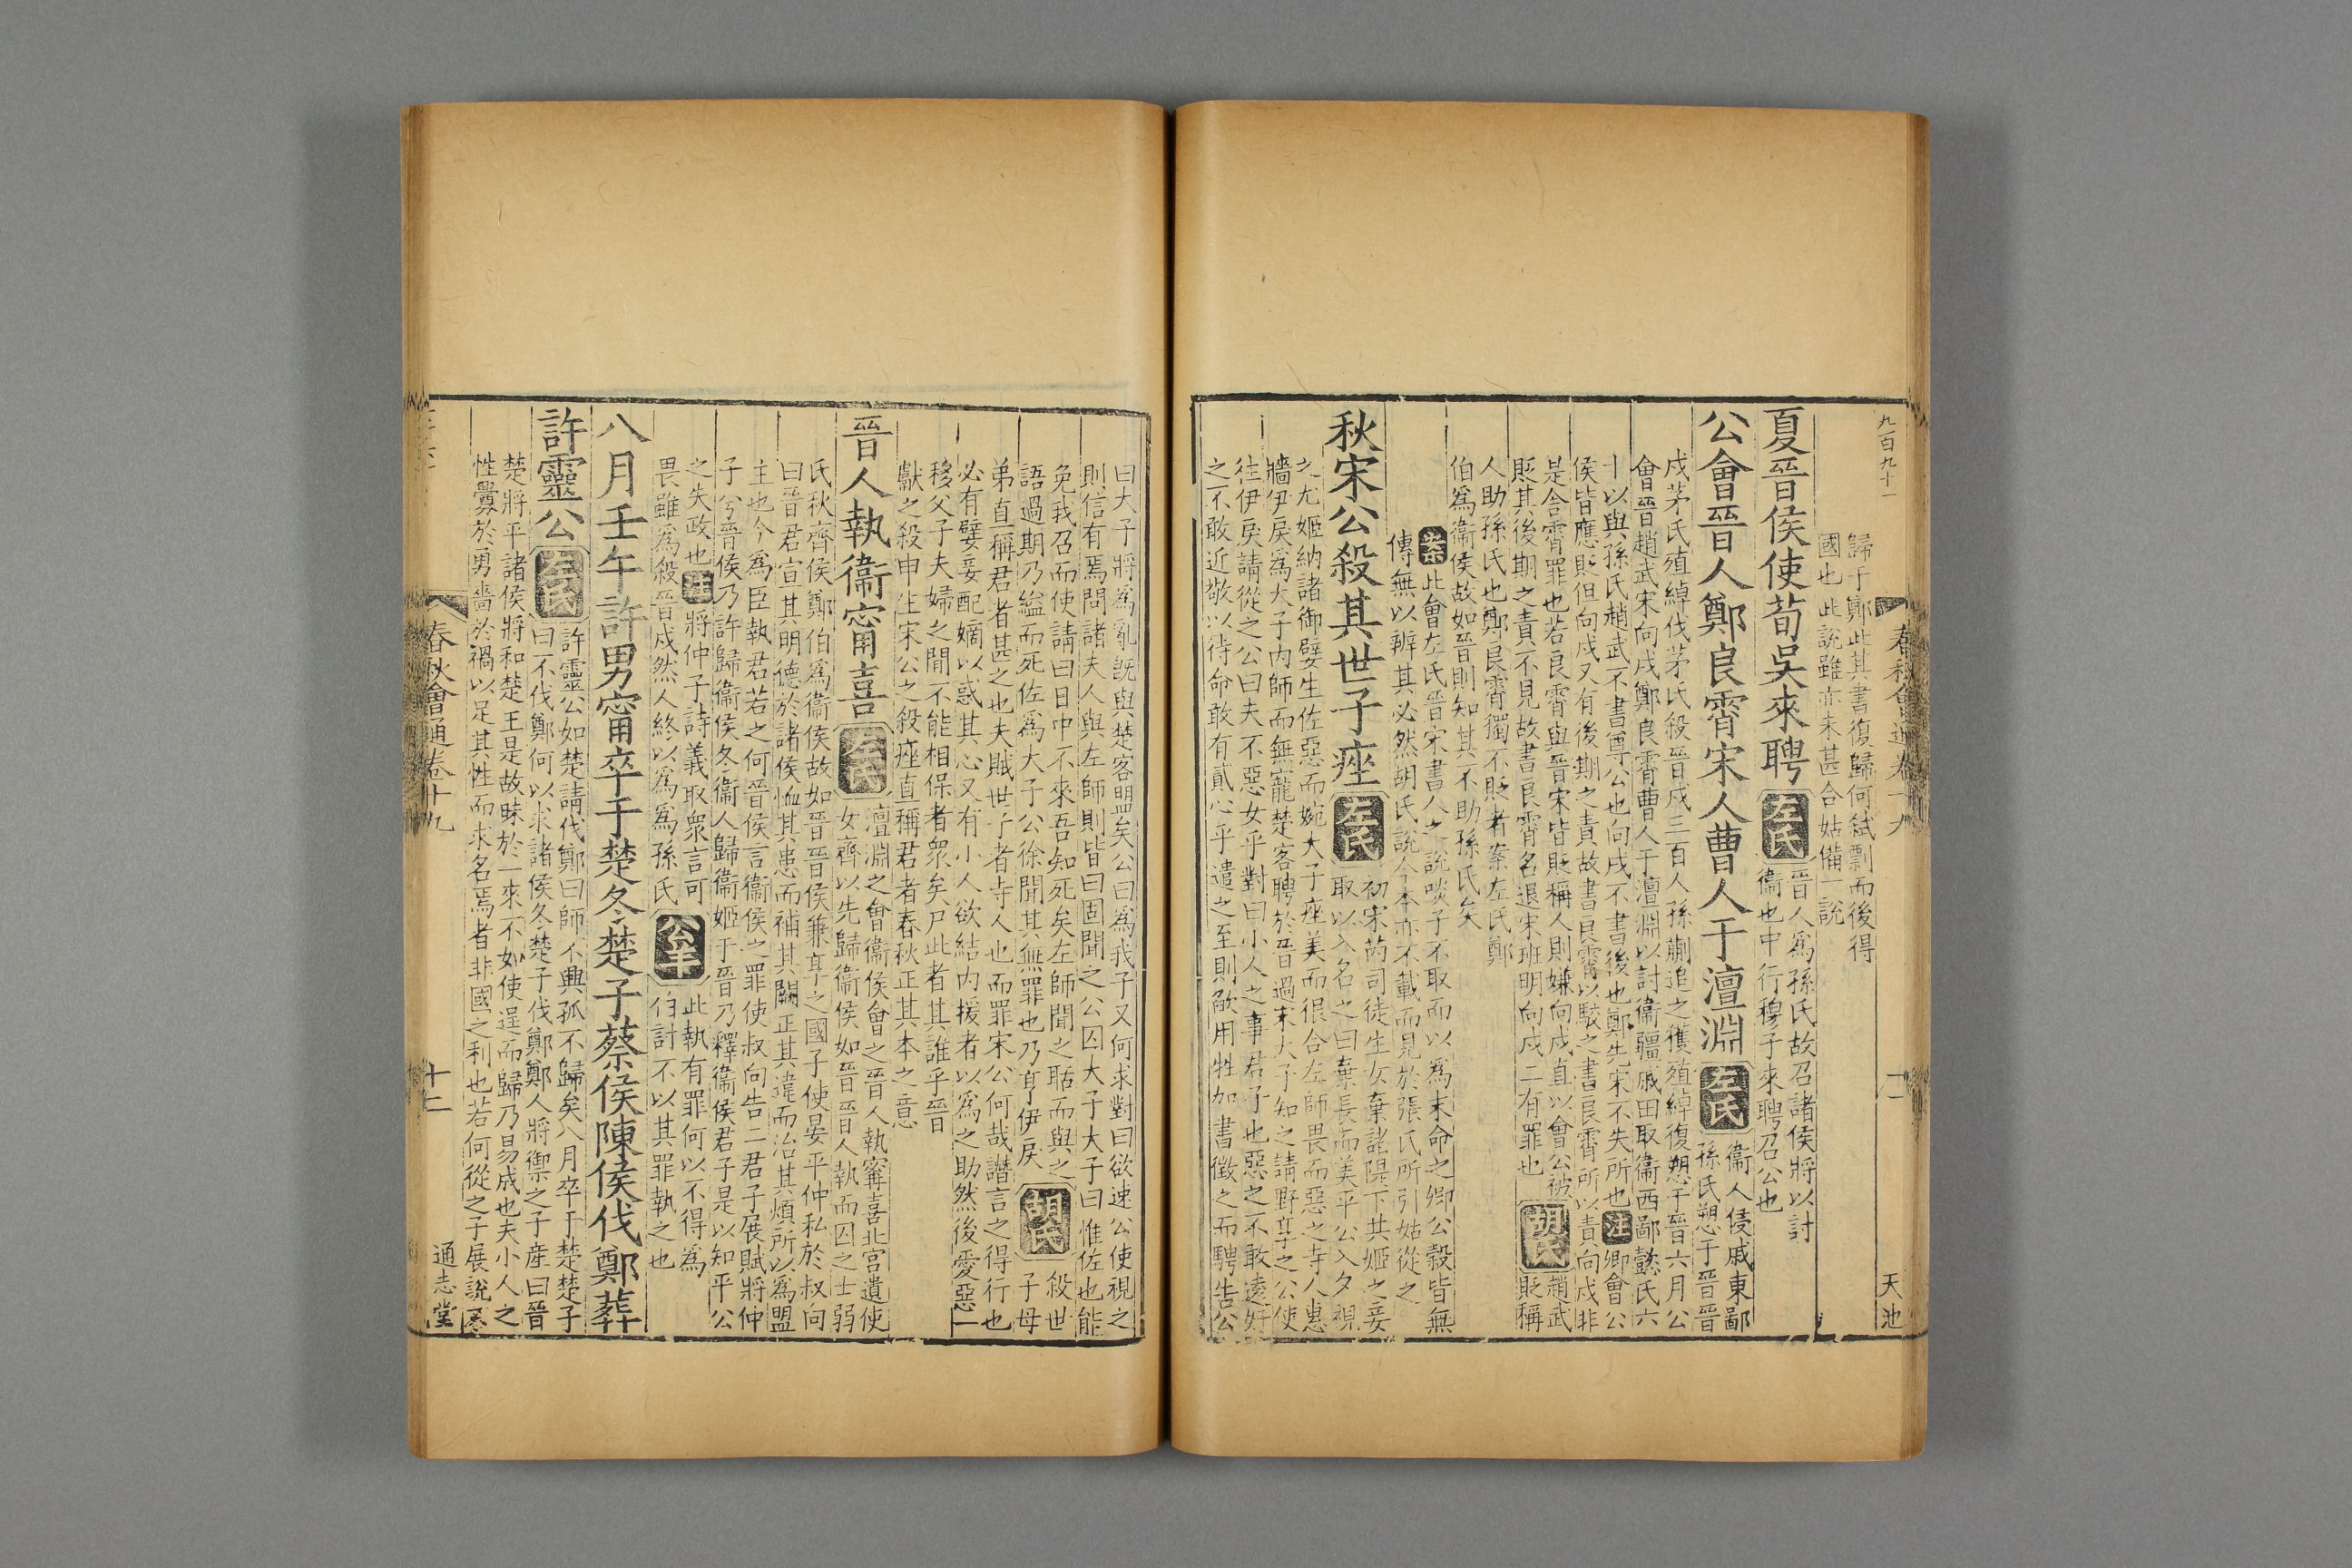 九百九十一
春秋會通卷十九
天池
歸于鄭此其書復歸何弒剽而後得
國也 此說雖亦未甚合姑備一說
夏晉侯使荀吳來聘
左氏
晉人爲孫氏故召諸侯將以討
衞也中行穆子來聘召公也
公會晉人鄭良霄宋人曹人于澶淵
左氏
衞人侵戚東鄙
孫氏愬于晉晉
戍茅氏殖綽伐茅氏殺晉戍三百人孫蒯追之獲殖綽復愬于晉六月公
會晉趙武宋向戌鄭良霄曹人于澶淵以討衞疆戚田取衞西鄙懿氏六
十以與孫氏趙武不書尊公也向戌不書後也鄭先宋不失所也 注 卿會公
侯皆應貶但向戌又有後期之責故書良霄以駮之書良霄所以責向戌非
是舍霄罪也若良霄與晉宋皆貶稱人則嫌向戌直以會公被
貶其後期之責不見故書良霄名退宋班明向戌二有罪也
胡氏
趙武
貶稱
人助孫氏也鄭良霄獨不貶者案左氏鄭
伯爲衞侯故如晉則知其不助孫氏矣
案 此會左氏晉宋書人之說啖子不取而以爲未命之卿公穀皆無
傳無以辨其必然胡氏說今本亦不載而見於張氏所引姑從之
秋宋公殺其世子痤
左氏
初宋芮司徒生女棄諸隄下共姬之妾
取以入名之曰棄長而美平公入夕視
之尤姬納諸御嬖生佐惡而婉大子痤美而很合左師畏而惡之寺人惠
牆伊戾爲大子內師而無寵楚客聘於晉過宋大子知之請野享之公使
往伊戾請從之公曰夫不惡女乎對曰小人之事君子也惡之不敢遠好
之不敢近敬以待命敢有貳心乎遣之至則欿用牲加書徵之而騁告公
曰大子將爲亂旣與楚客盟矣公曰爲我子又何求對曰欲速公使視之
則信有焉問諸夫人與左師則皆曰固聞之公囚大子大子曰惟佐也能
免我召而使請曰日中不來吾知死矣左師聞之聒而與之
語過期乃縊而死佐爲大子公徐聞其無罪也乃亨伊戾
胡氏
殺世
子母
弟直稱君者甚之也夫賊世子者寺人也而罪宋公何哉譖言之得行也
必有嬖妾配嫡以惑其心又有小人欲結內援者以爲之助然後愛惡一
移父子夫婦之間不能相保者衆矣尸此者其誰乎晉
獻之殺申生宋公之殺痤直稱君者春秋正其本之意
晉人執衞甯喜
左氏
澶淵之會衞侯會之晉人執甯喜北宮遺使
女齊以先歸衞侯如晉晉人執而囚之士弱
氏秋齊侯鄭伯爲衞侯故如晉晉侯兼享之國子使晏平仲私於叔向
曰晉君宣其明德於諸侯恤其患而補其闕正其違而治其煩所以爲盟
主也今爲臣執君若之何晉侯言衞侯之罪使叔向告二君子展賦將仲
子兮晉侯乃許歸衞侯冬衞人歸衞姬于晉乃釋衞侯君子是以知平公
之失政也 注 將仲子詩義取衆言可
畏雖爲殺晉戍然人終以爲爲孫氏
公羊
此執有罪何以不得爲
伯討不以其罪執之也
八月壬午許男甯卒于楚冬楚子蔡侯陳侯伐鄭葬
許靈公
左氏
許靈公如楚請伐鄭曰師不興孤不歸矣八月卒于楚楚子
曰不伐鄭何以求諸侯冬楚子伐鄭鄭人將禦之子產曰晉
楚將平諸侯將和楚王是故昧於一來不如使逞而歸乃易成也夫小人之
性釁於勇嗇於禍以足其性而求名焉者非國之利也若何從之子展說不
春秋會通卷十九
十二
通志堂